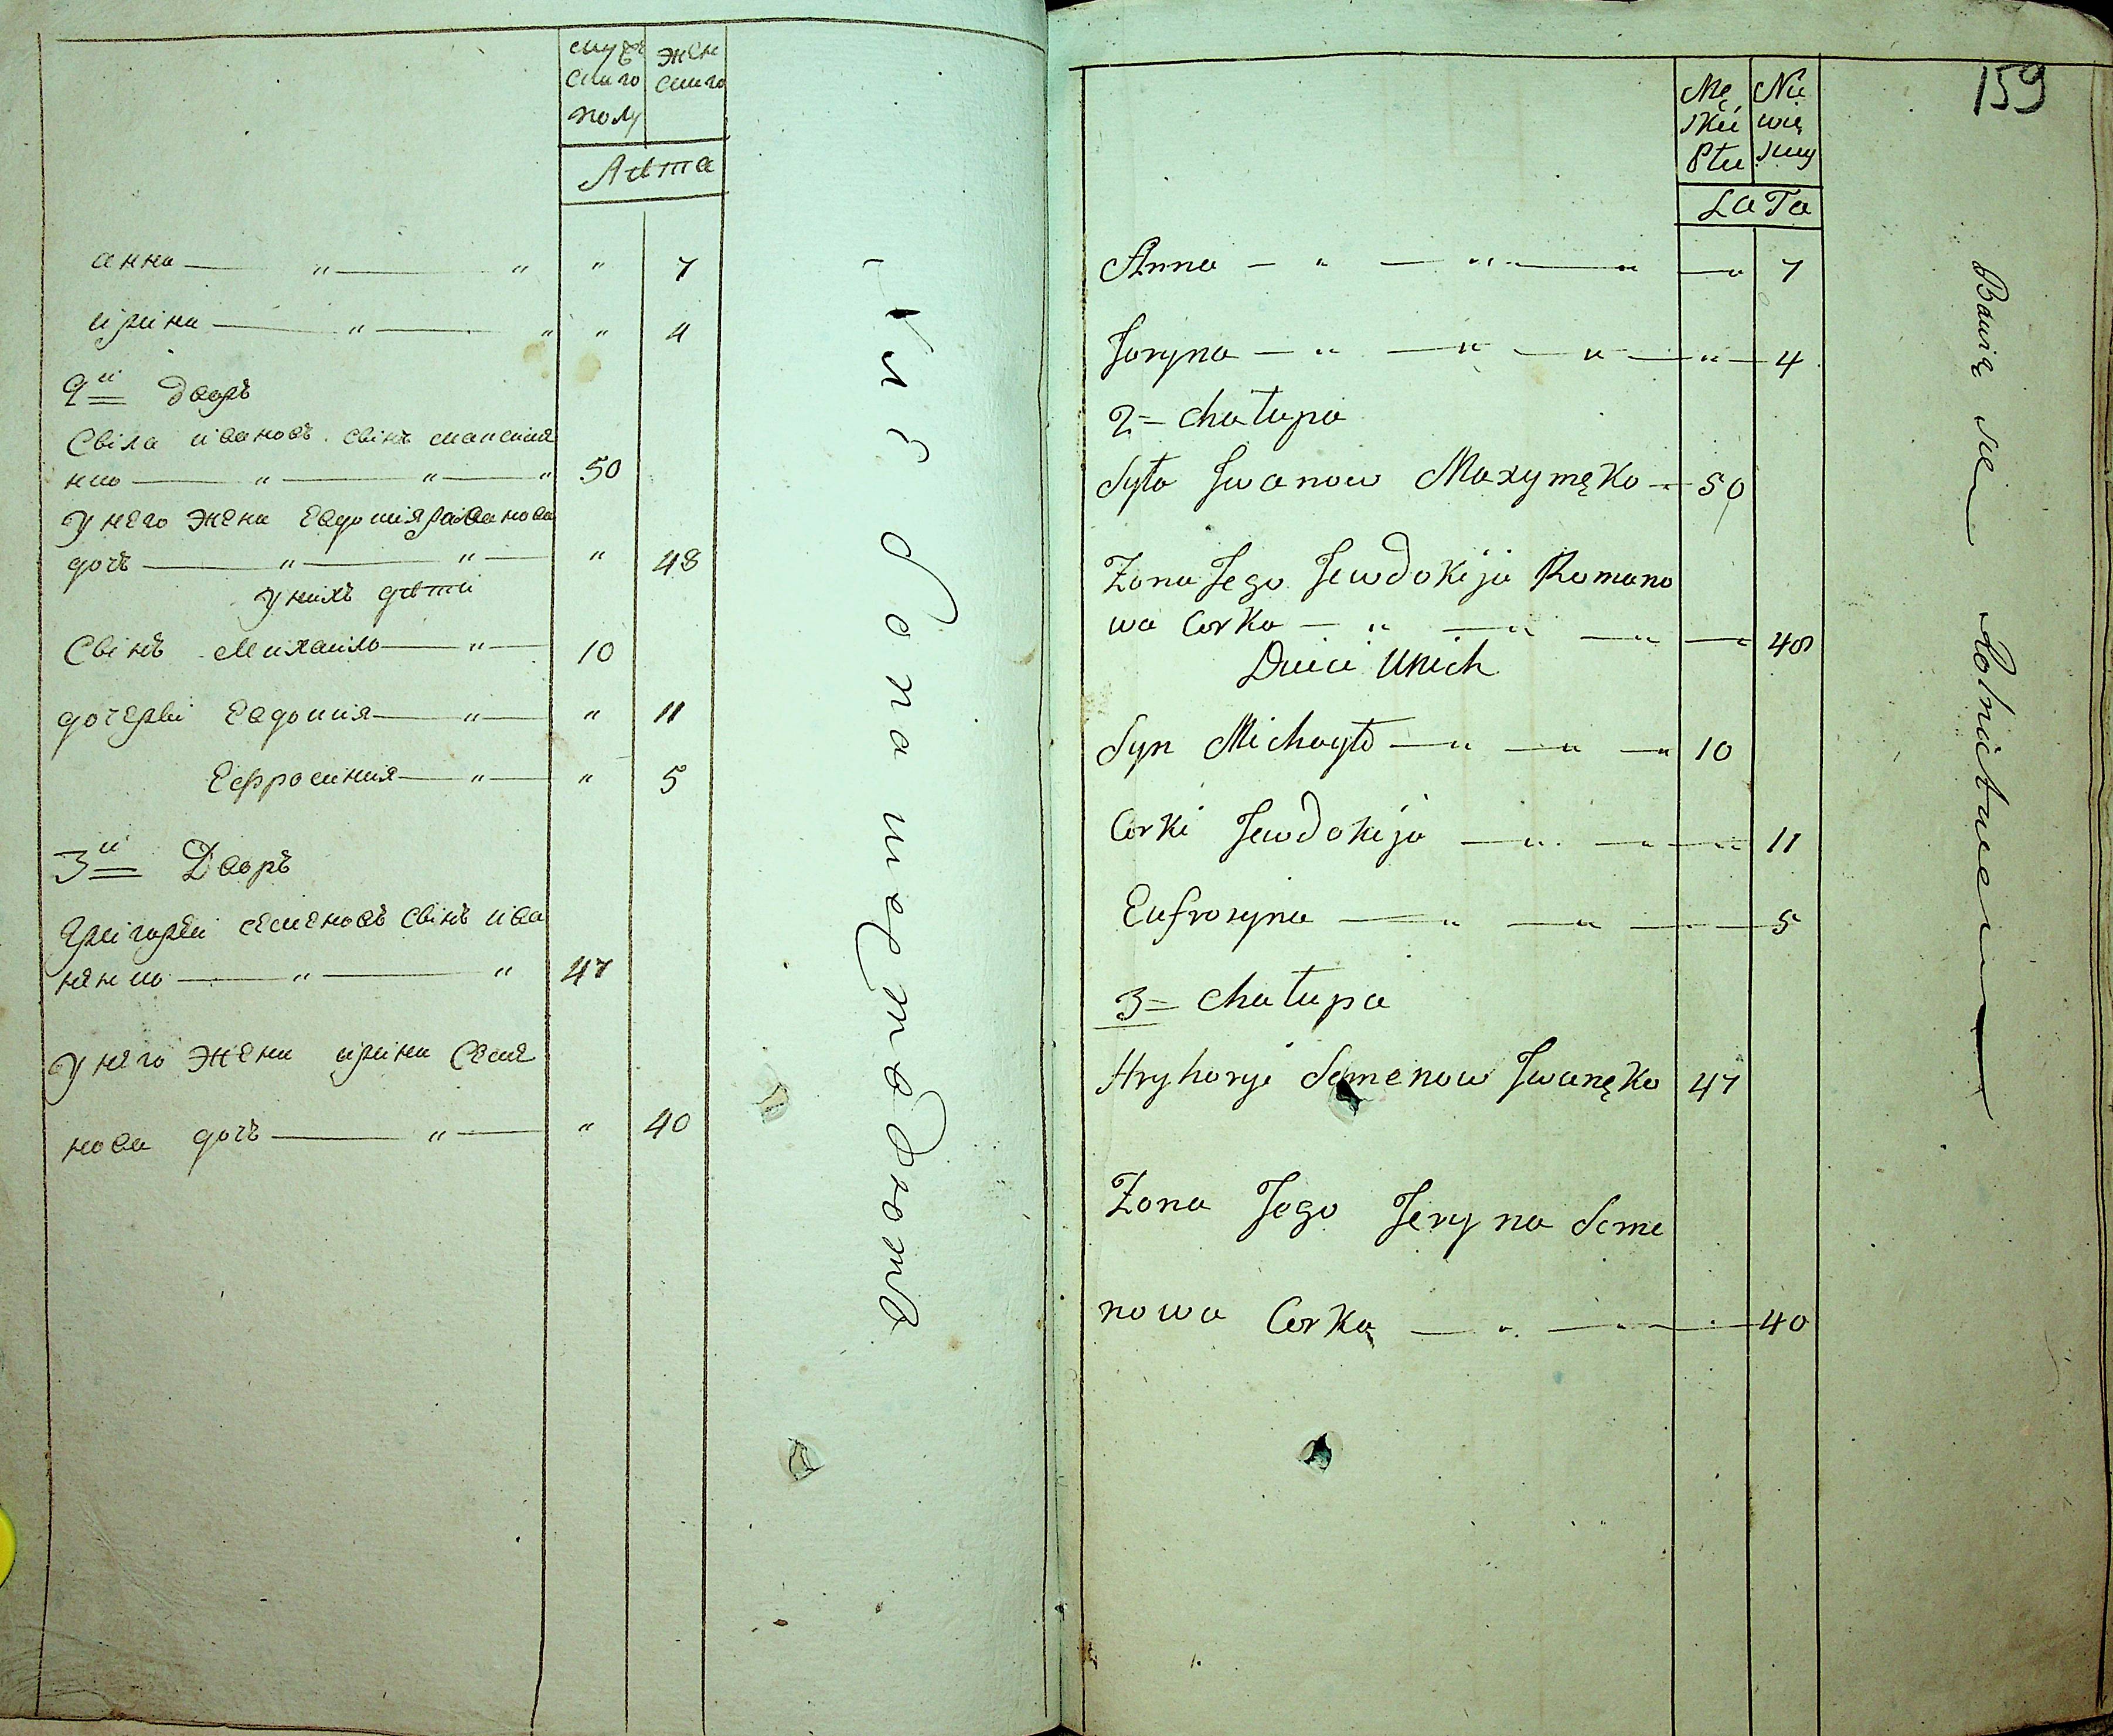 мужескаго полу
женскаго
Лѣта
анна — " — " " 7
ирина — " — " " 4
2й дворъ
Свіла ивановъ свінъ максиме
нко — " — " — " 50
У него жена Евдокия романова
дочъ — " — " — " 48
У нихъ дѣти
Свінъ Михаило — " — 10
дочерві Евдокия — " — " 11
Ефросиния — " — " 5
3й Дворъ
Григорѣи семеновъ свінъ ива
ненко — " — " 47
У него жена ирина Семе
нова дочъ — " — " 40
хлебопашествомъ
159
Męskiej Płci
Niewiesciey
LaTa
Anna — " — " — " — " 7
Jaryna — " — " — " — " — 4
2 = chałupa
Syła Jwanow Maxymęko — 50
Zona Jego Jewdokija Romano
wa Corka — " — " — " — " 48
Dzieci Unich
Syn Michayło — " — " — " 10
Corki Jewdokija — " — " — " 11
Eufrosyna — " — " — — 5
3 = chałupa
Hryhoryi Semenow Jwanęko 47
Zona Jego Jeryna Seme
nowa Corka — " — " — 40
Bawią sie Rolnictwem